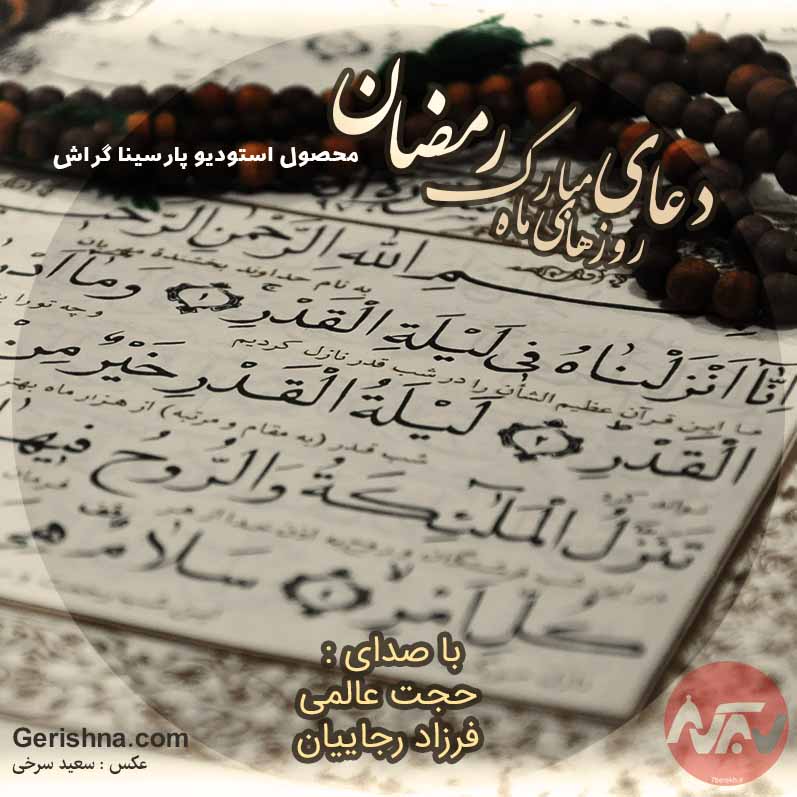 دعای
روزهای ماه
مبارک رمضان
محصول استودیو پارسینا گراش
بِسْمِ اللهِ الرَّحْمنِ الرَّحیمِ
به نام خداوند بخشندهٔ مهربان
اِنّا اَنْزَلْناهُ فی لَیْلَةِ الْقَدْرِ ۱ وَما اَدْ
ما این قرآن عظیم الشأن را در شب قدر نازل کردیم و چه تو را
الْقَدْرِ ۲ لَیْلَةُ الْقَدْرِ خَیْرٌ مِنْ
شب قدر (به مقام و مرتبه) از هزار ماه بهتر
تَنَزَّلُ الْمَلٰئِکَةُ وَالرُّوحُ فیها
کُلِّ اَمْرٍ ۴ سَلامٌ هِیَ
با صدای :
حجت عالمی
فرزاد رجاییان
Gerishna.com
عکس : سعید سرخی
7berekh.ir